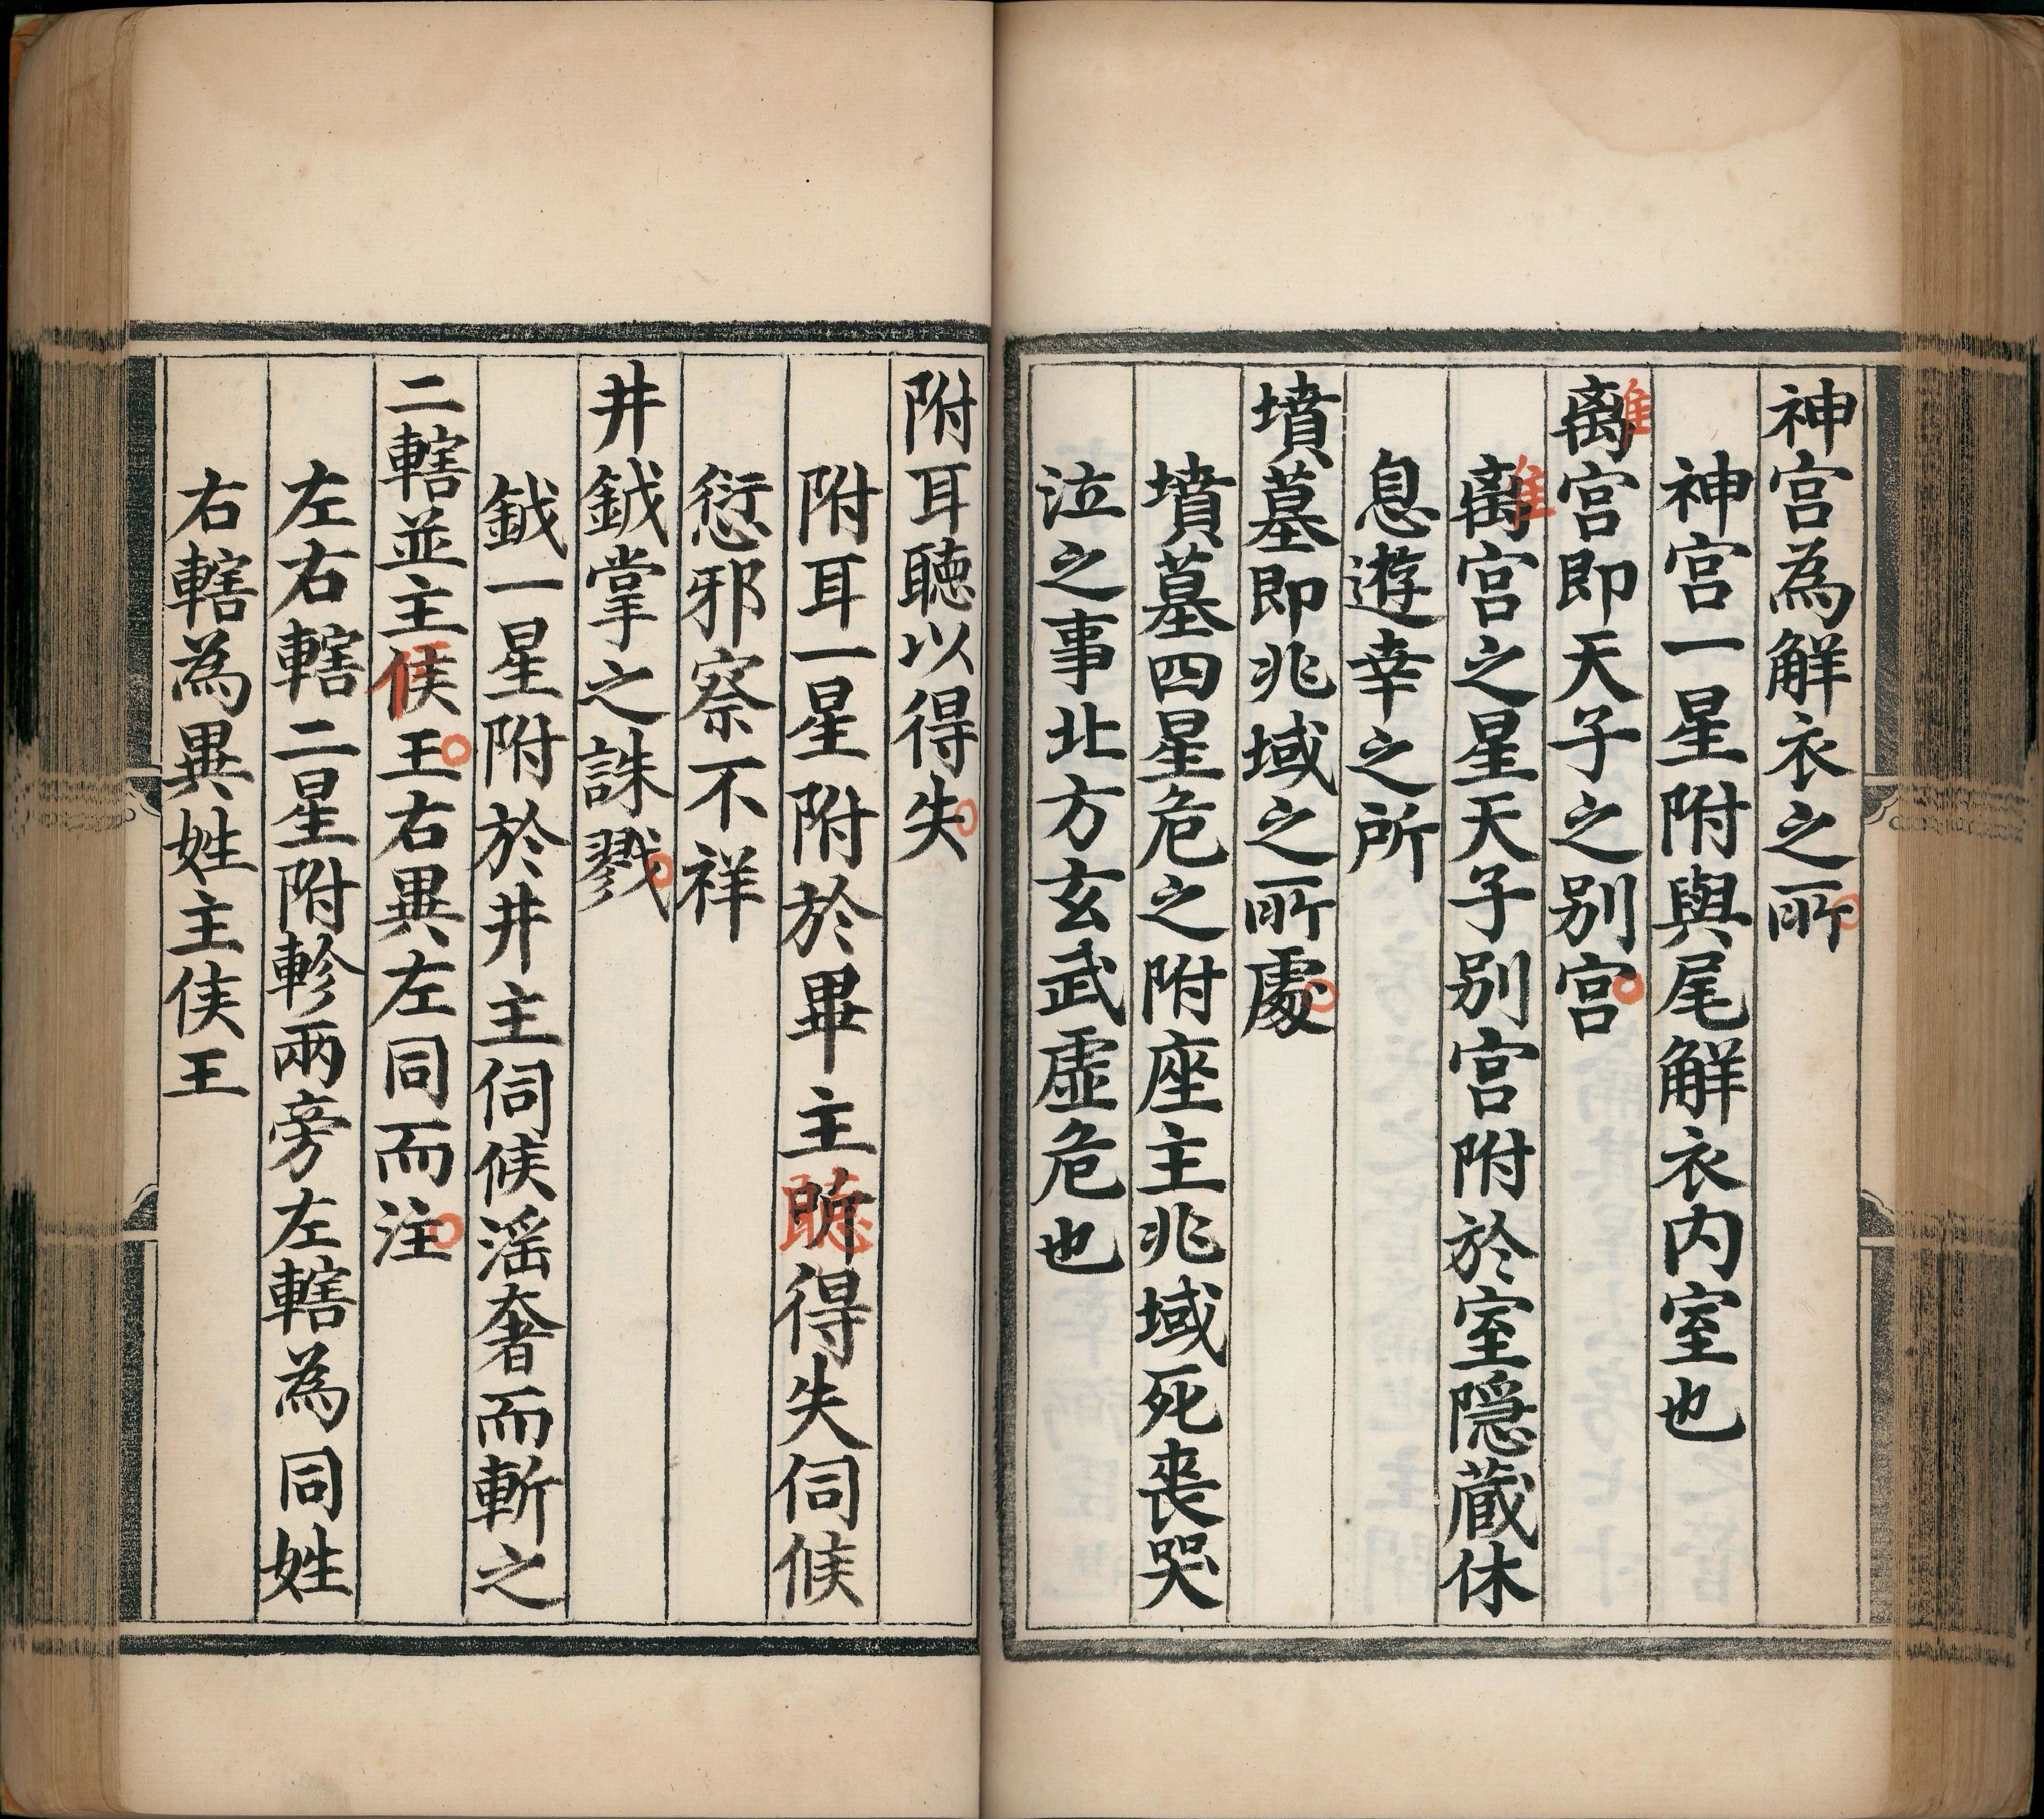 神宮為解衣之所
神宮一星附與尾解衣内室也
離宮即天子之別宮
離宮之星天子別宮附於室隱藏休
息遊幸之所
墳墓即兆域之所處
墳墓四星危之附座主兆域死喪哭
泣之事北方玄武虛危也
附耳聽以得失
附耳一星附於畢主聽得失伺候
愆邪察不祥
井鉞掌之誅戮
鉞一星附於井主伺候滛奢而斬之
二轄並主侯王右異左同而注
左右轄二星附軫兩旁左轄為同姓
右轄為異姓主侯王